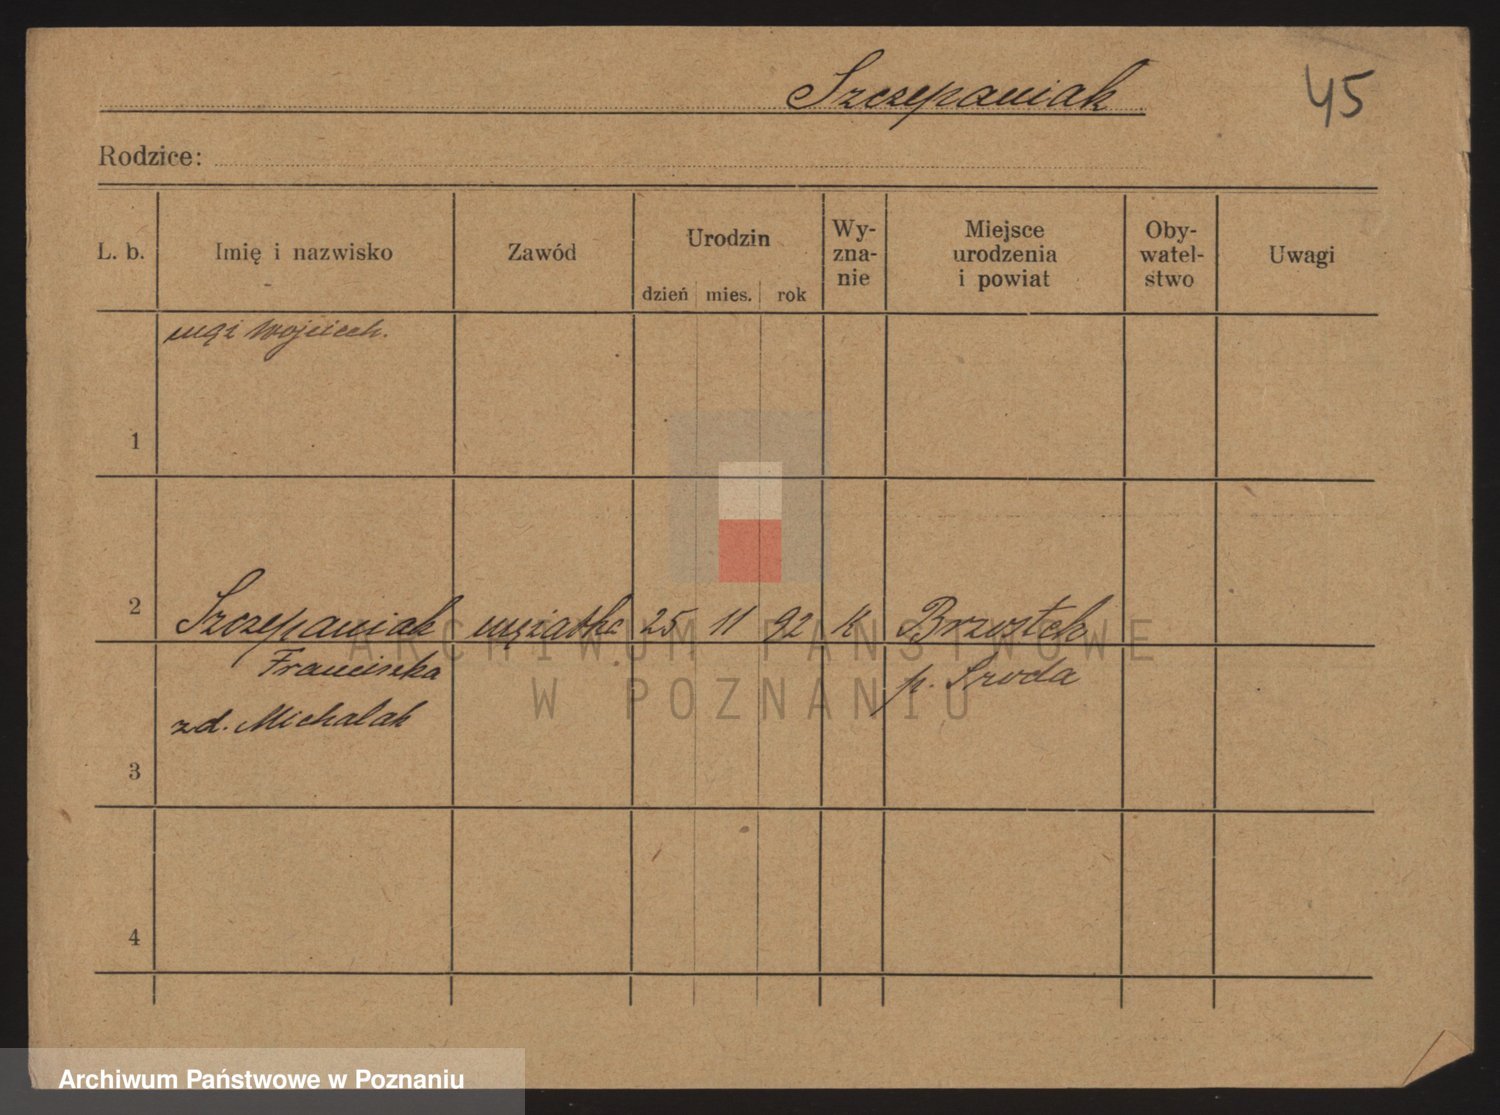 Szczepaniak
45
Rodzice:
L. b.
Imię i nazwisko
Zawód
Urodzin
dzień mies. rok
Wy-
zna-
nie
Miejsce
urodzenia
i powiat
Oby-
watel-
stwo
Uwagi
mąż Wojciech.
1
2
Szczepaniak mężatka 25 11 92 k Brzostek
Franciszka p. Środa
zd. Michalak
3
4
ARCHIWUM PAŃSTWOWE
W POZNANIU
Archiwum Państwowe w Poznaniu